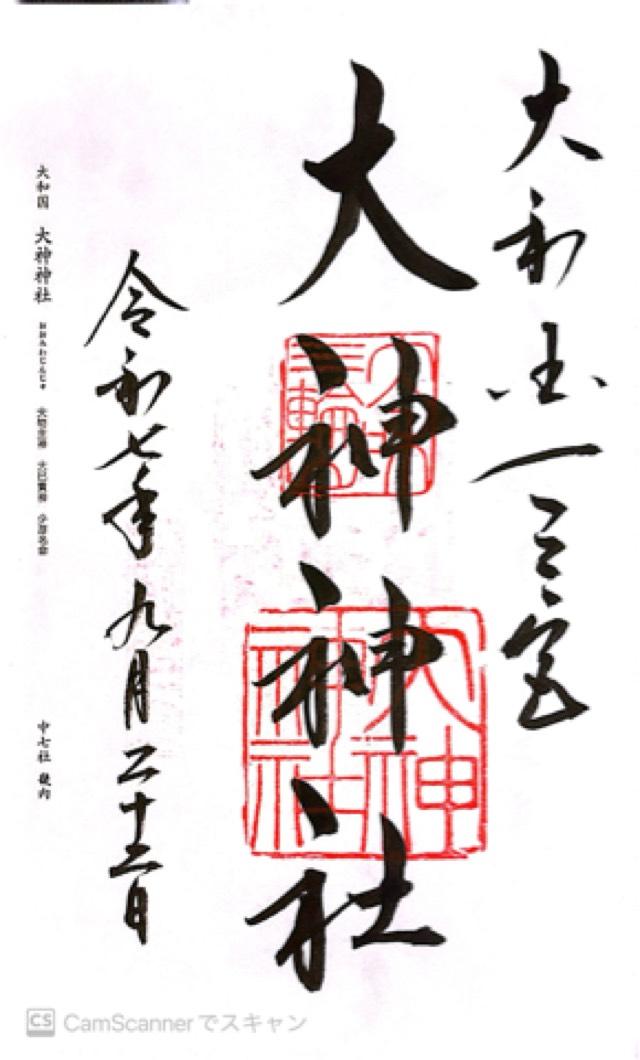 大和国一之宮
大神神社
大神神社
令和七年九月二十二日
大和国 大神神社 おおみわじんじゃ 大物主神 大己貴神 少彦名命 中七社 畿内
CS CamScannerでスキャン